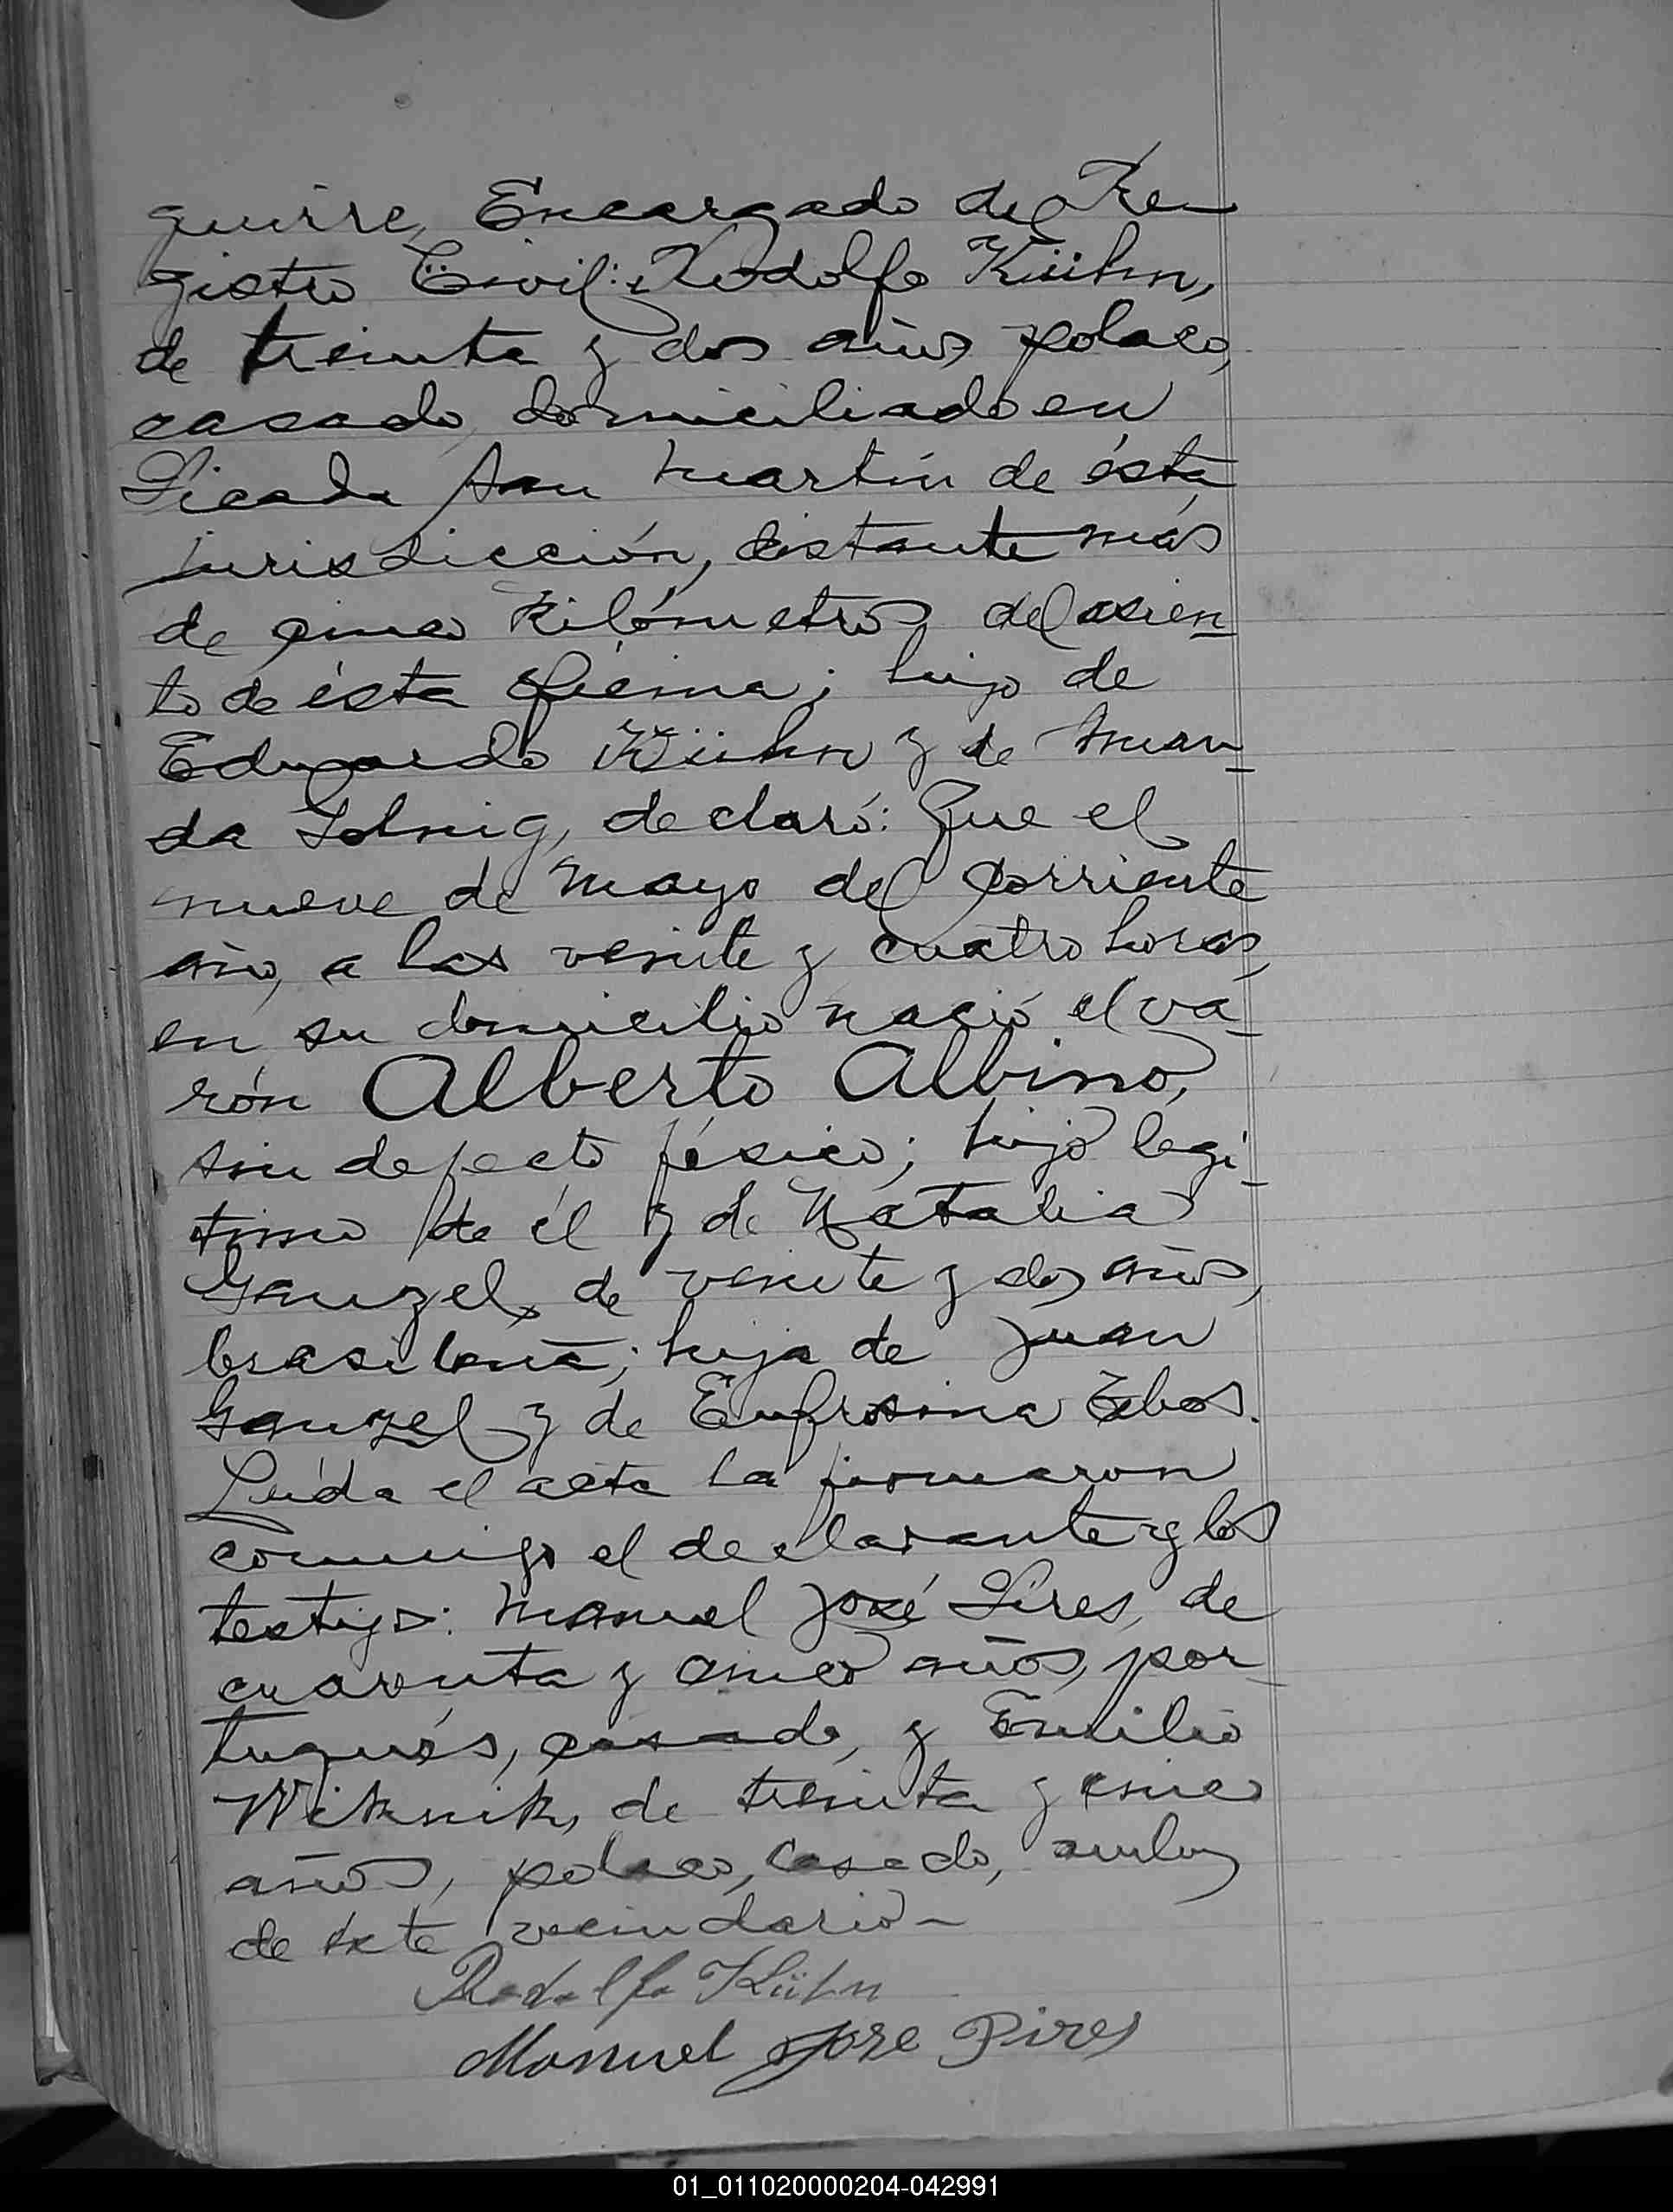 guirre, Encargado del Re-
gistro Civil: Rodolfo Kühn,
de treinta y dos años, polaco,
casado, domiciliado en
Picada San Martín de ésta
jurisdicción, distante más
de cinco kilómetros del asien-
to de ésta Oficina; hijo de
Eduardo Kühn y de
da declaró: Que el
nueve de Mayo del corriente
año, a las veinte y cuatro horas,
en su domicilio nació el va-
rón Alberto Albino,
sin defecto físico; hijo legí-
timo de él y de Natalia
Ganzel, de veinte y dos años,
brasileña; hija de Juan
Ganzel y de Eufrosina
Leída el acta la firmaron
conmigo el declarante y los
testigos: Manuel José Pires, de
cuarenta y cinco años, por-
tugués, casado, y Emilio
de treinta y cinco
años, polaco, casado, ambos
de éste vecindario-
Rodolfo Kühn
Manuel Jose Pires
01_011020000204-042991